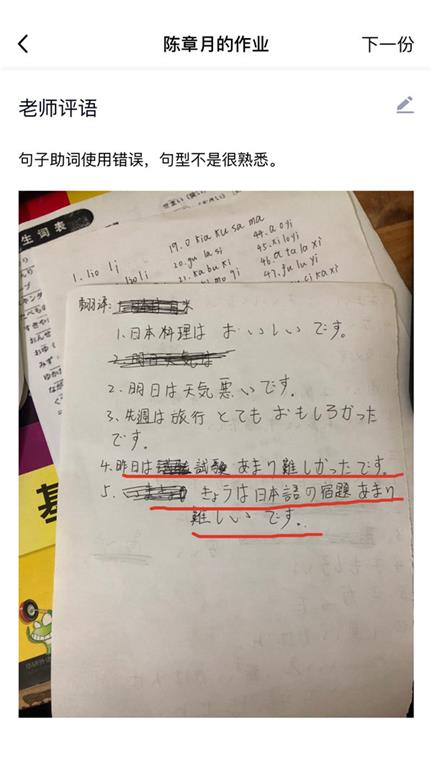 陈章月的作业
下一份
老师评语
句子助词使用错误，句型不是很熟悉。
生词表
1. lio lj
19. o kia ku sa ma
20. gu la si
21. ka bu ki
44. a o ji
45. xi lo yi
46. a ta la xi
47. fu lu yi
翻译:
1. 日本料理は おいしい です。
2. 明日天気は
2. 明日は天気悪いです。
3. 先週は旅行 とても おもしろかった
です。
4. 昨日は 試験 あまり難しかったです。
5. きょうは日本語の宿題 あまり
難しい です。
基